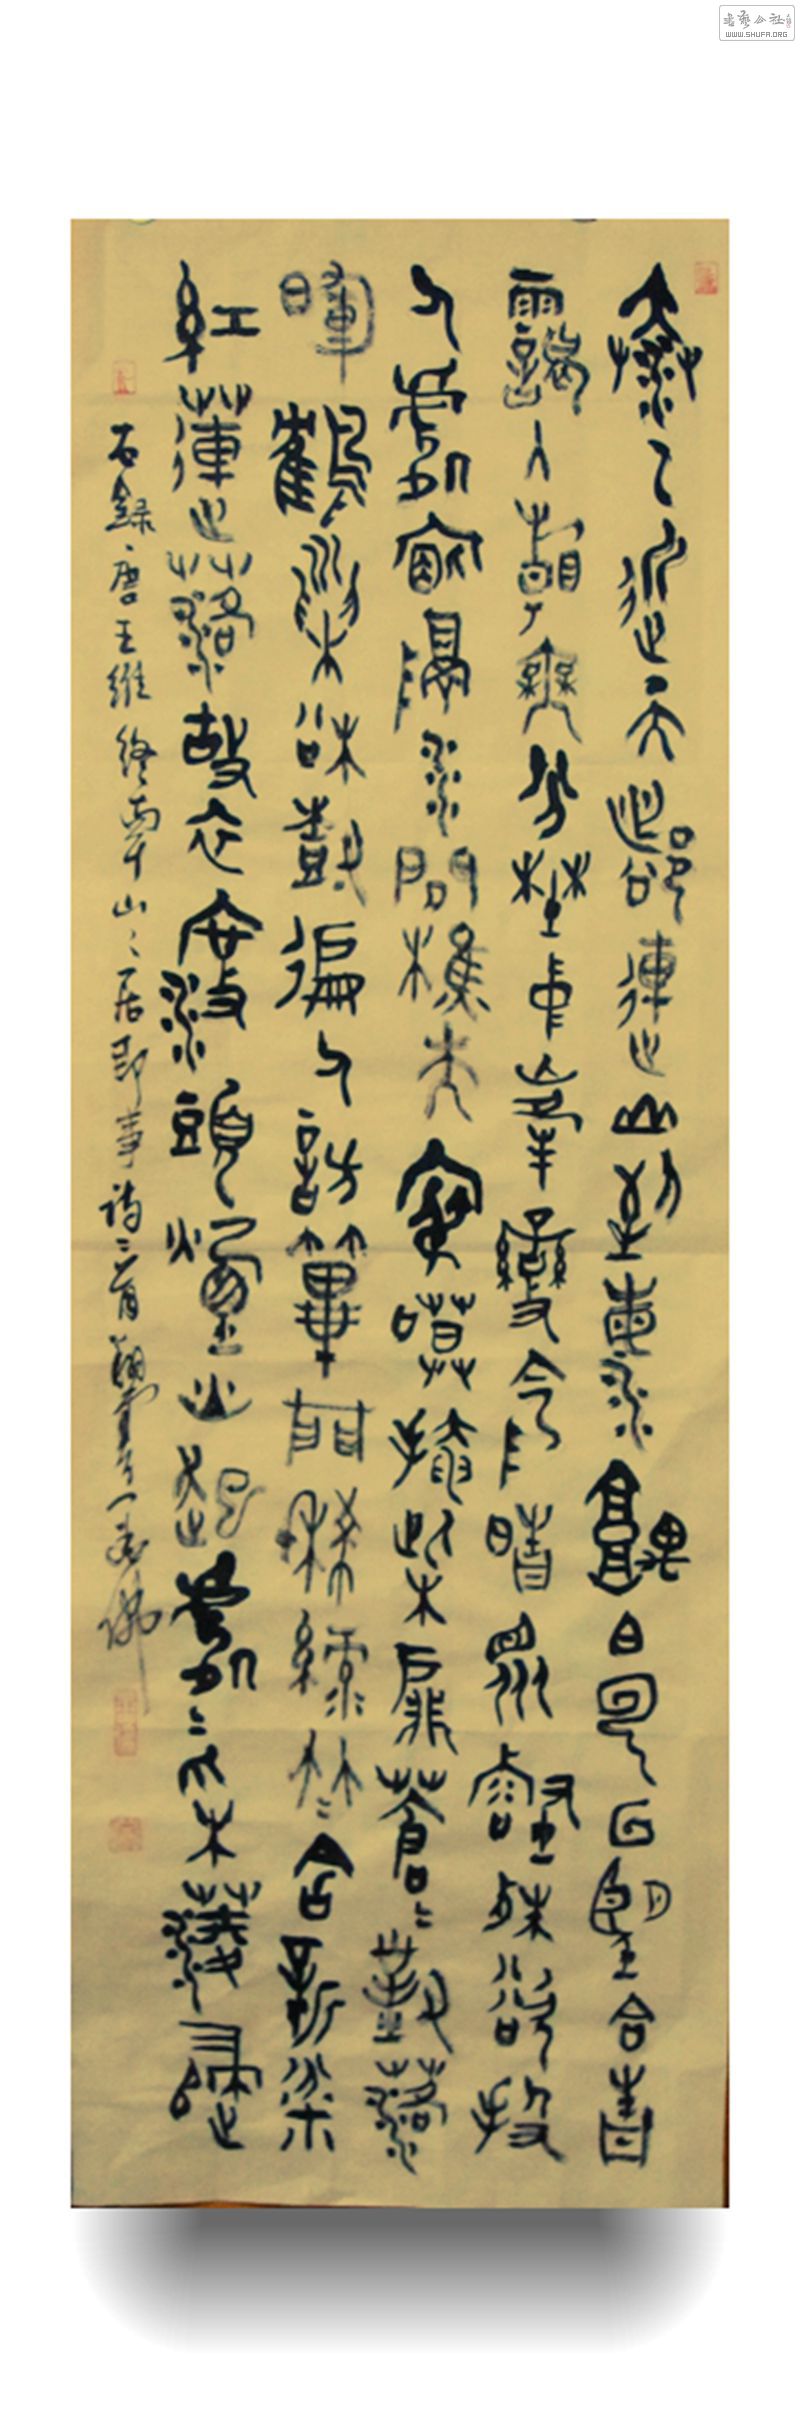 泰乙近天都連山到海隅白雲回望合青
靄入看無分野中峰變陰晴眾壑殊欲投
人處宿隔水問樵夫寂寞掩柴扉蒼々對落
暉鶴巢松樹徧人訪蓽門稀綠竹含新粉
紅蓮落故衣渡頭煙火起處々采菱歸
右錄唐王維終南山々居即事詩二首
WWW.SHUFA.ORG